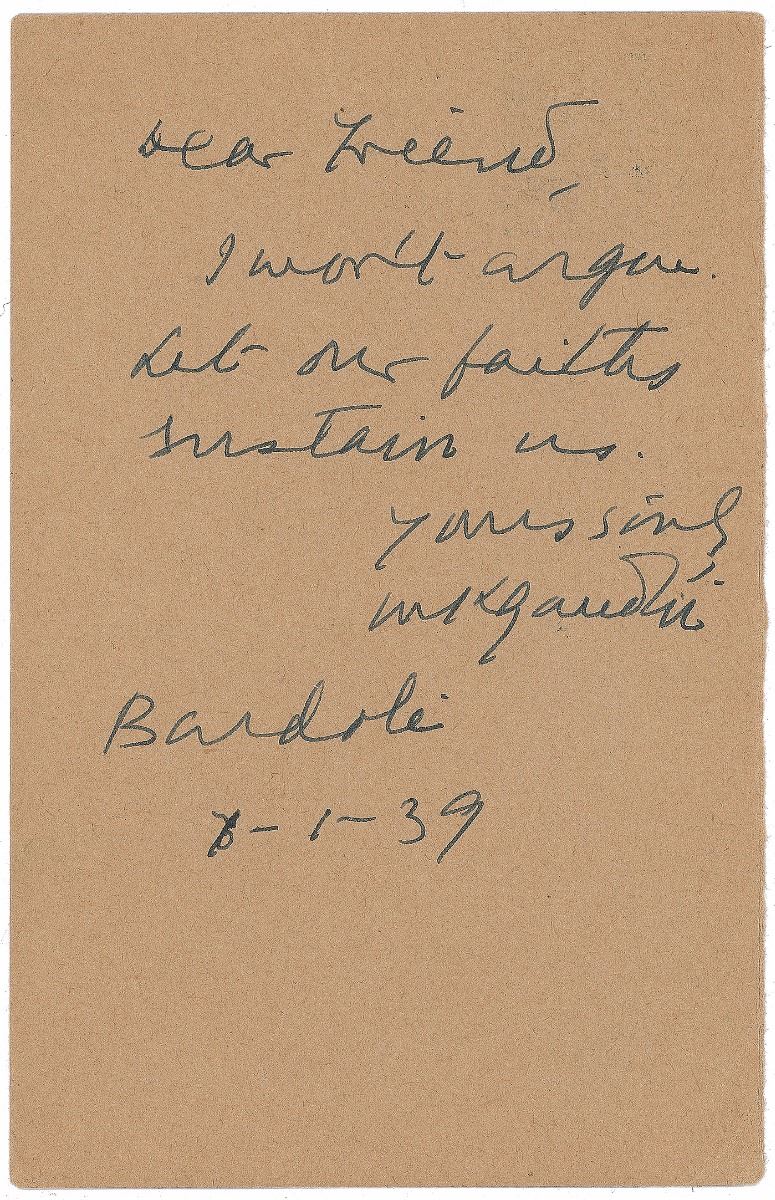 Dear Friend,
I won't argue.
Let our faiths
sustain us.
Yours sincly,
MKGandhi
Bardoli
-1-39